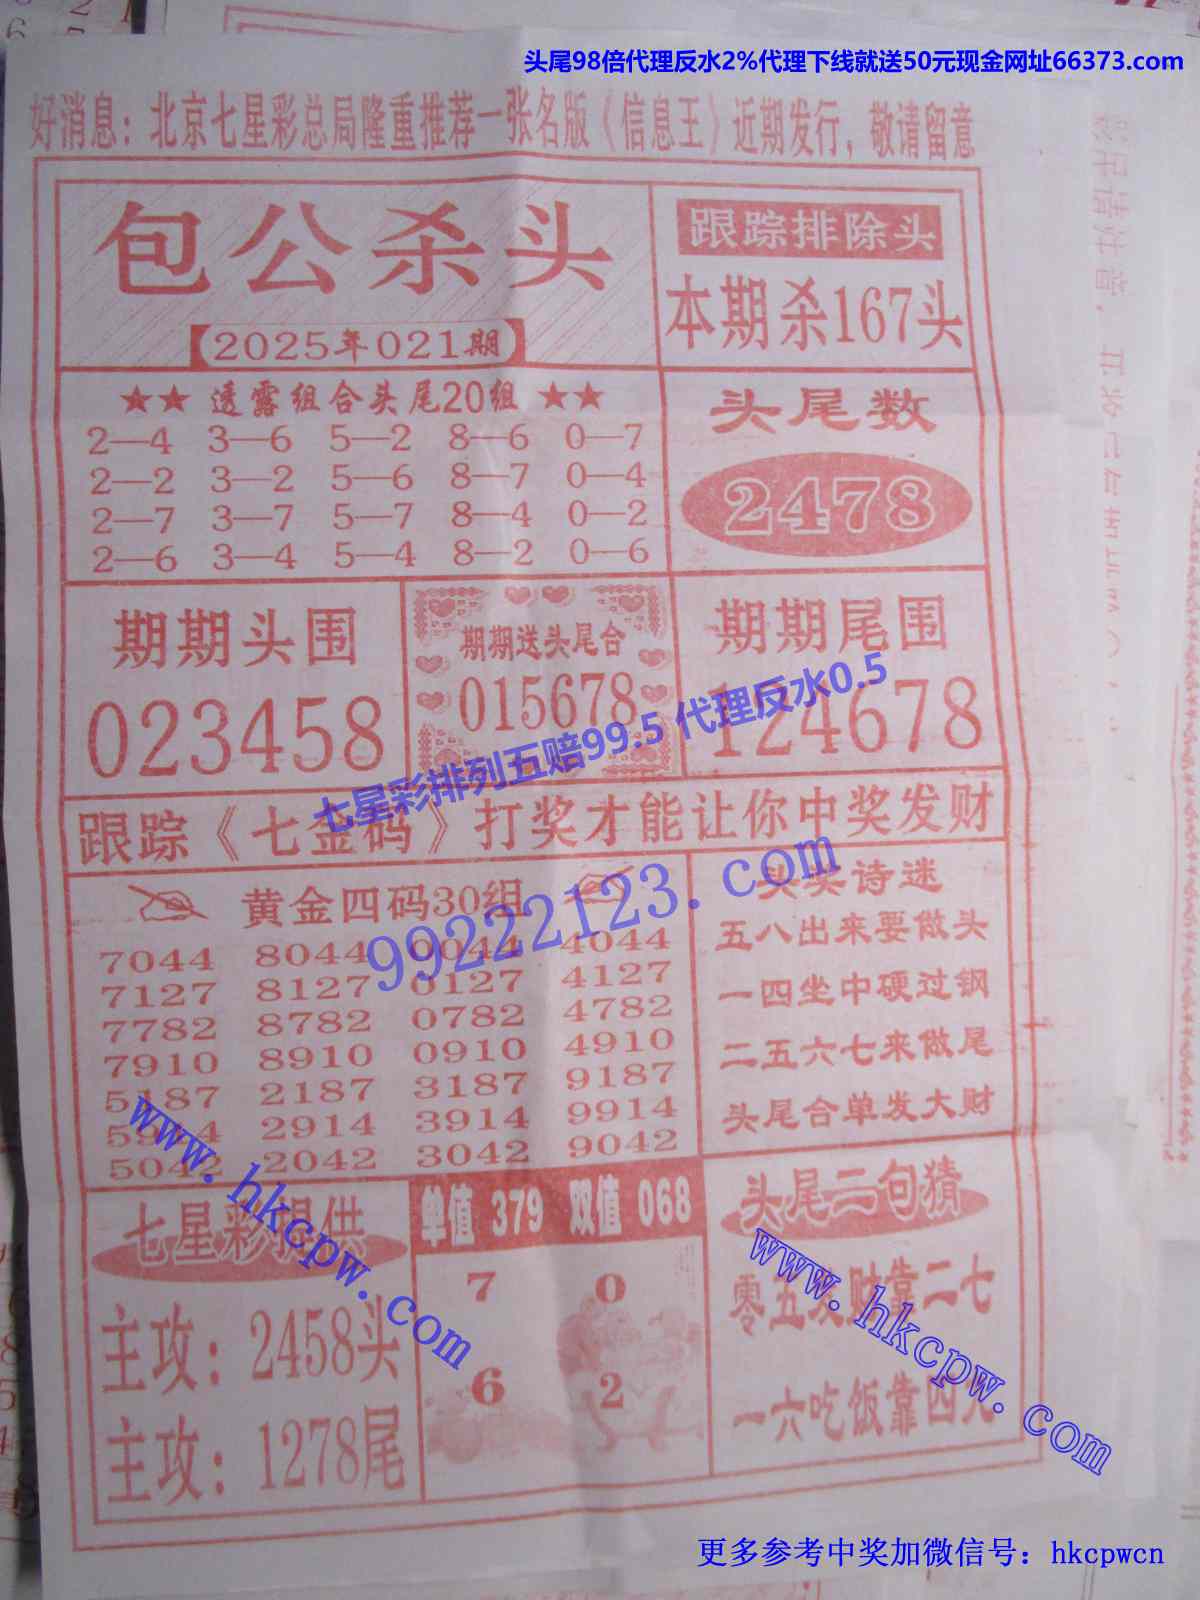 头尾98倍代理反水2%代理下线就送50元现金网址66373.com
好消息：北京七星彩总局隆重推荐一张名版《信息王》近期发行，敬请留意
包公杀头
【2025年021期】
跟踪排除头
本期杀167头
★★ 透露组合头尾20组 ★★
2—4 3—6 5—2 8—6 0—7
2—2 3—2 5—6 8—7 0—4
2—7 3—7 5—7 8—4 0—2
2—6 3—4 5—4 8—2 0—6
头尾数
2478
期期头围
023458
期期送头尾合
015678
期期尾围
124678
七星彩排列五赔99.5 代理反水0.5
跟踪《七金码》打奖才能让你中奖发财
99222123.com
黄金四码30组
7044 8044 0044 4044
7127 8127 0127 4127
7782 8782 0782 4782
7910 8910 0910 4910
5187 2187 3187 9187
5914 2914 3914 9914
5042 2042 3042 9042
头尖诗迷
五八出来要做头
一四坐中硬过钢
二五六七来做尾
头尾合单发大财
www.hkcpw.com
七星彩提供
主攻：2458头
主攻：1278尾
单值 379 双值 068
7 0
6 2
头尾二句猜
零五发财靠二七
一六吃饭靠四九
www.hkcpw.com
更多参考中奖加微信号：hkcpwcn